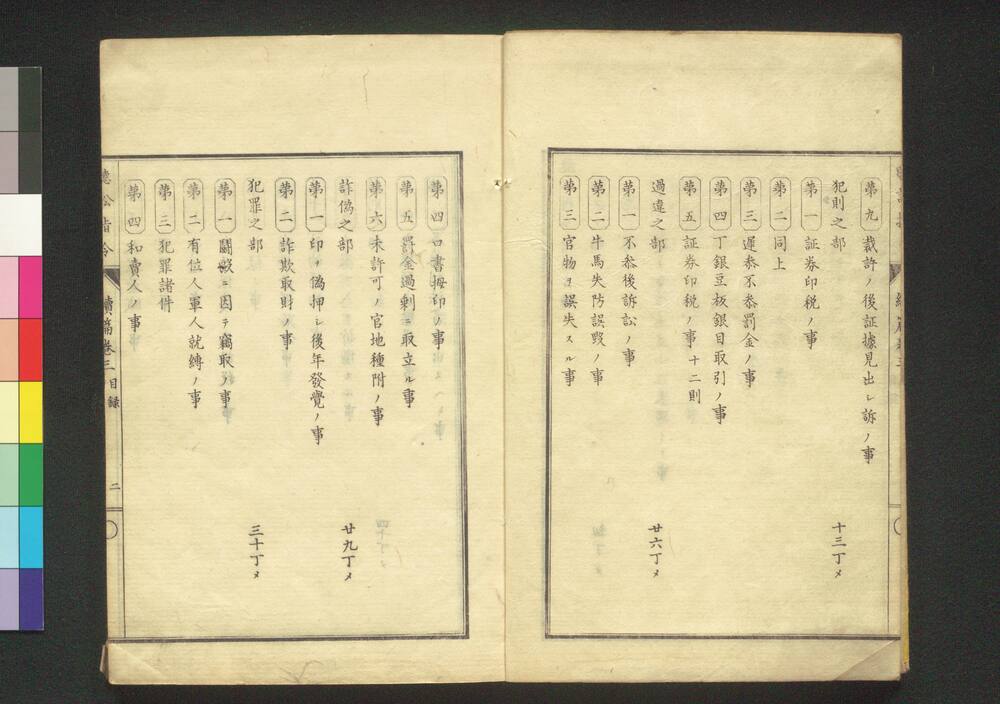 第九 裁許ノ後証據見出シ訴ノ事
犯則之部 十三丁メ
第一 証券印税ノ事
第二 同上
第三 遲参不参罰金ノ事
第四 丁銀豆板銀目取引ノ事
第五 証券印税ノ事十二則
過違之部 廿六丁メ
第一 不参後訴訟ノ事
第二 牛馬失防誤毀ノ事
第三 官物ヲ誤失スル事
第四 口書拇印ノ事
第五 罰金過剰ニ取立ル事
第六 未許可ノ官地種附ノ事
詐僞之部 廿九丁メ
第一 印ヲ僞押シ後年發覺ノ事
第二 詐欺取財ノ事
犯罪之部 三十丁メ
第一 鬪毆ニ因テ竊取ノ事
第二 有位人軍人就縛ノ事
第三 犯罪諸件
第四 和賣人ノ事
續篇卷三目録 二